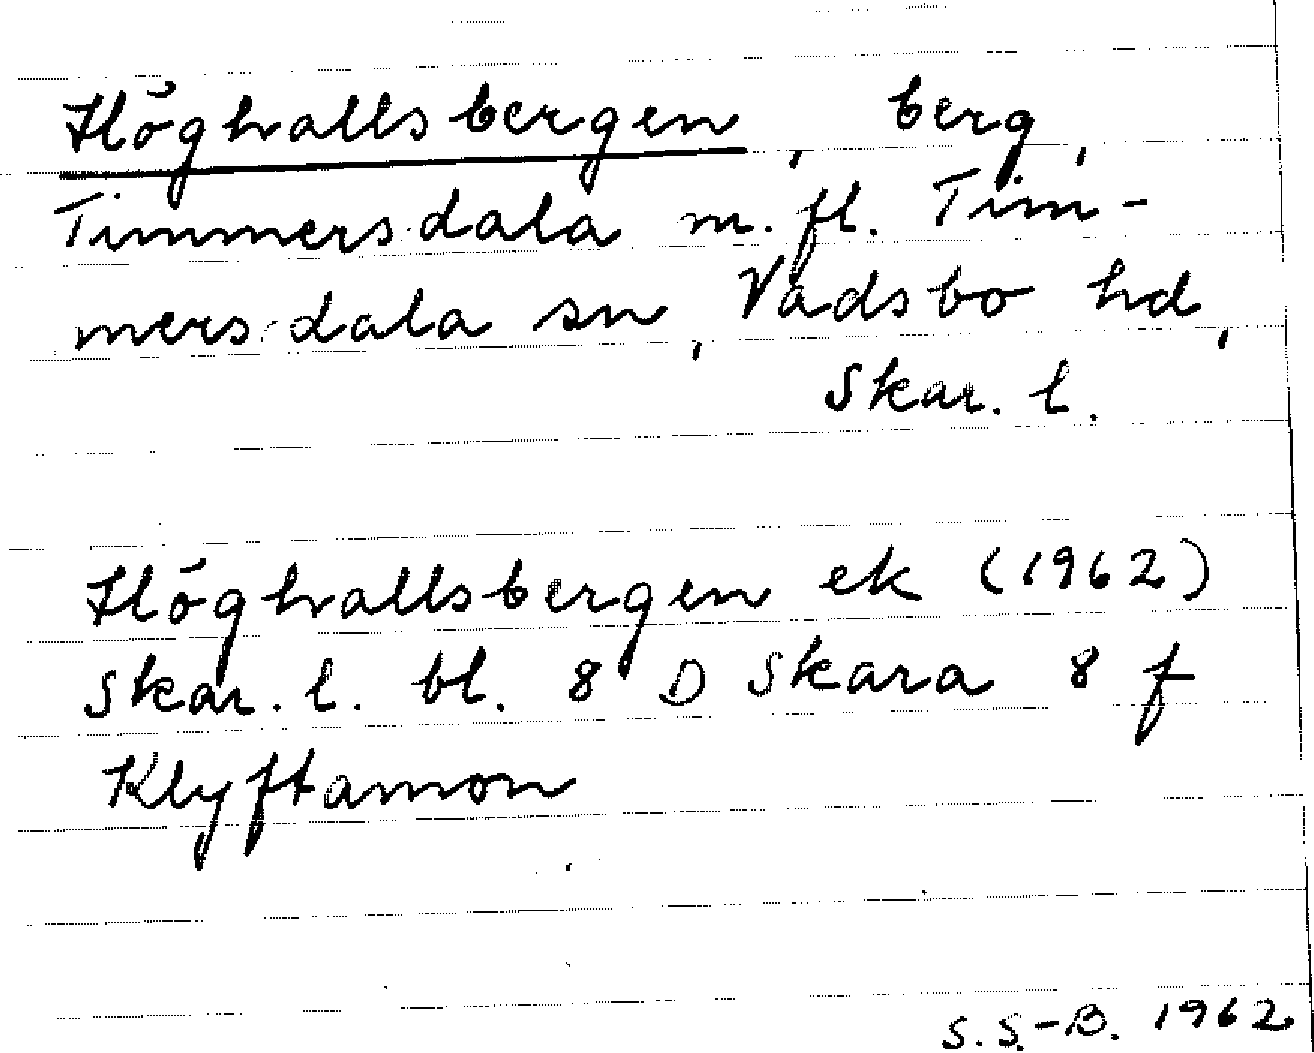 Höghallsbergen, berg,
Timmersdala m. fl. Tim-
mersdala sn, Vadsbo hd,
Skar. l.
Höghallsbergen ek (1962)
Skar. l. bl. 8 D Skara 8 f
Klyftamon
S. S.-B. 1962